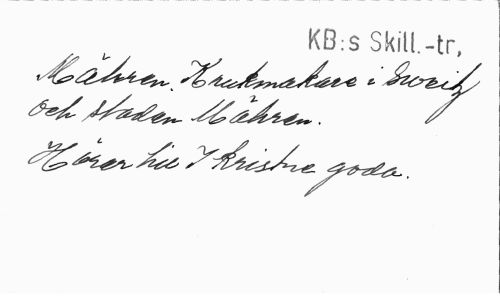 KB:s Skill.-tr,
Mähren. Krukmakare i Sweitz
och staden Mähren.
Hörer hit I kristne goda.